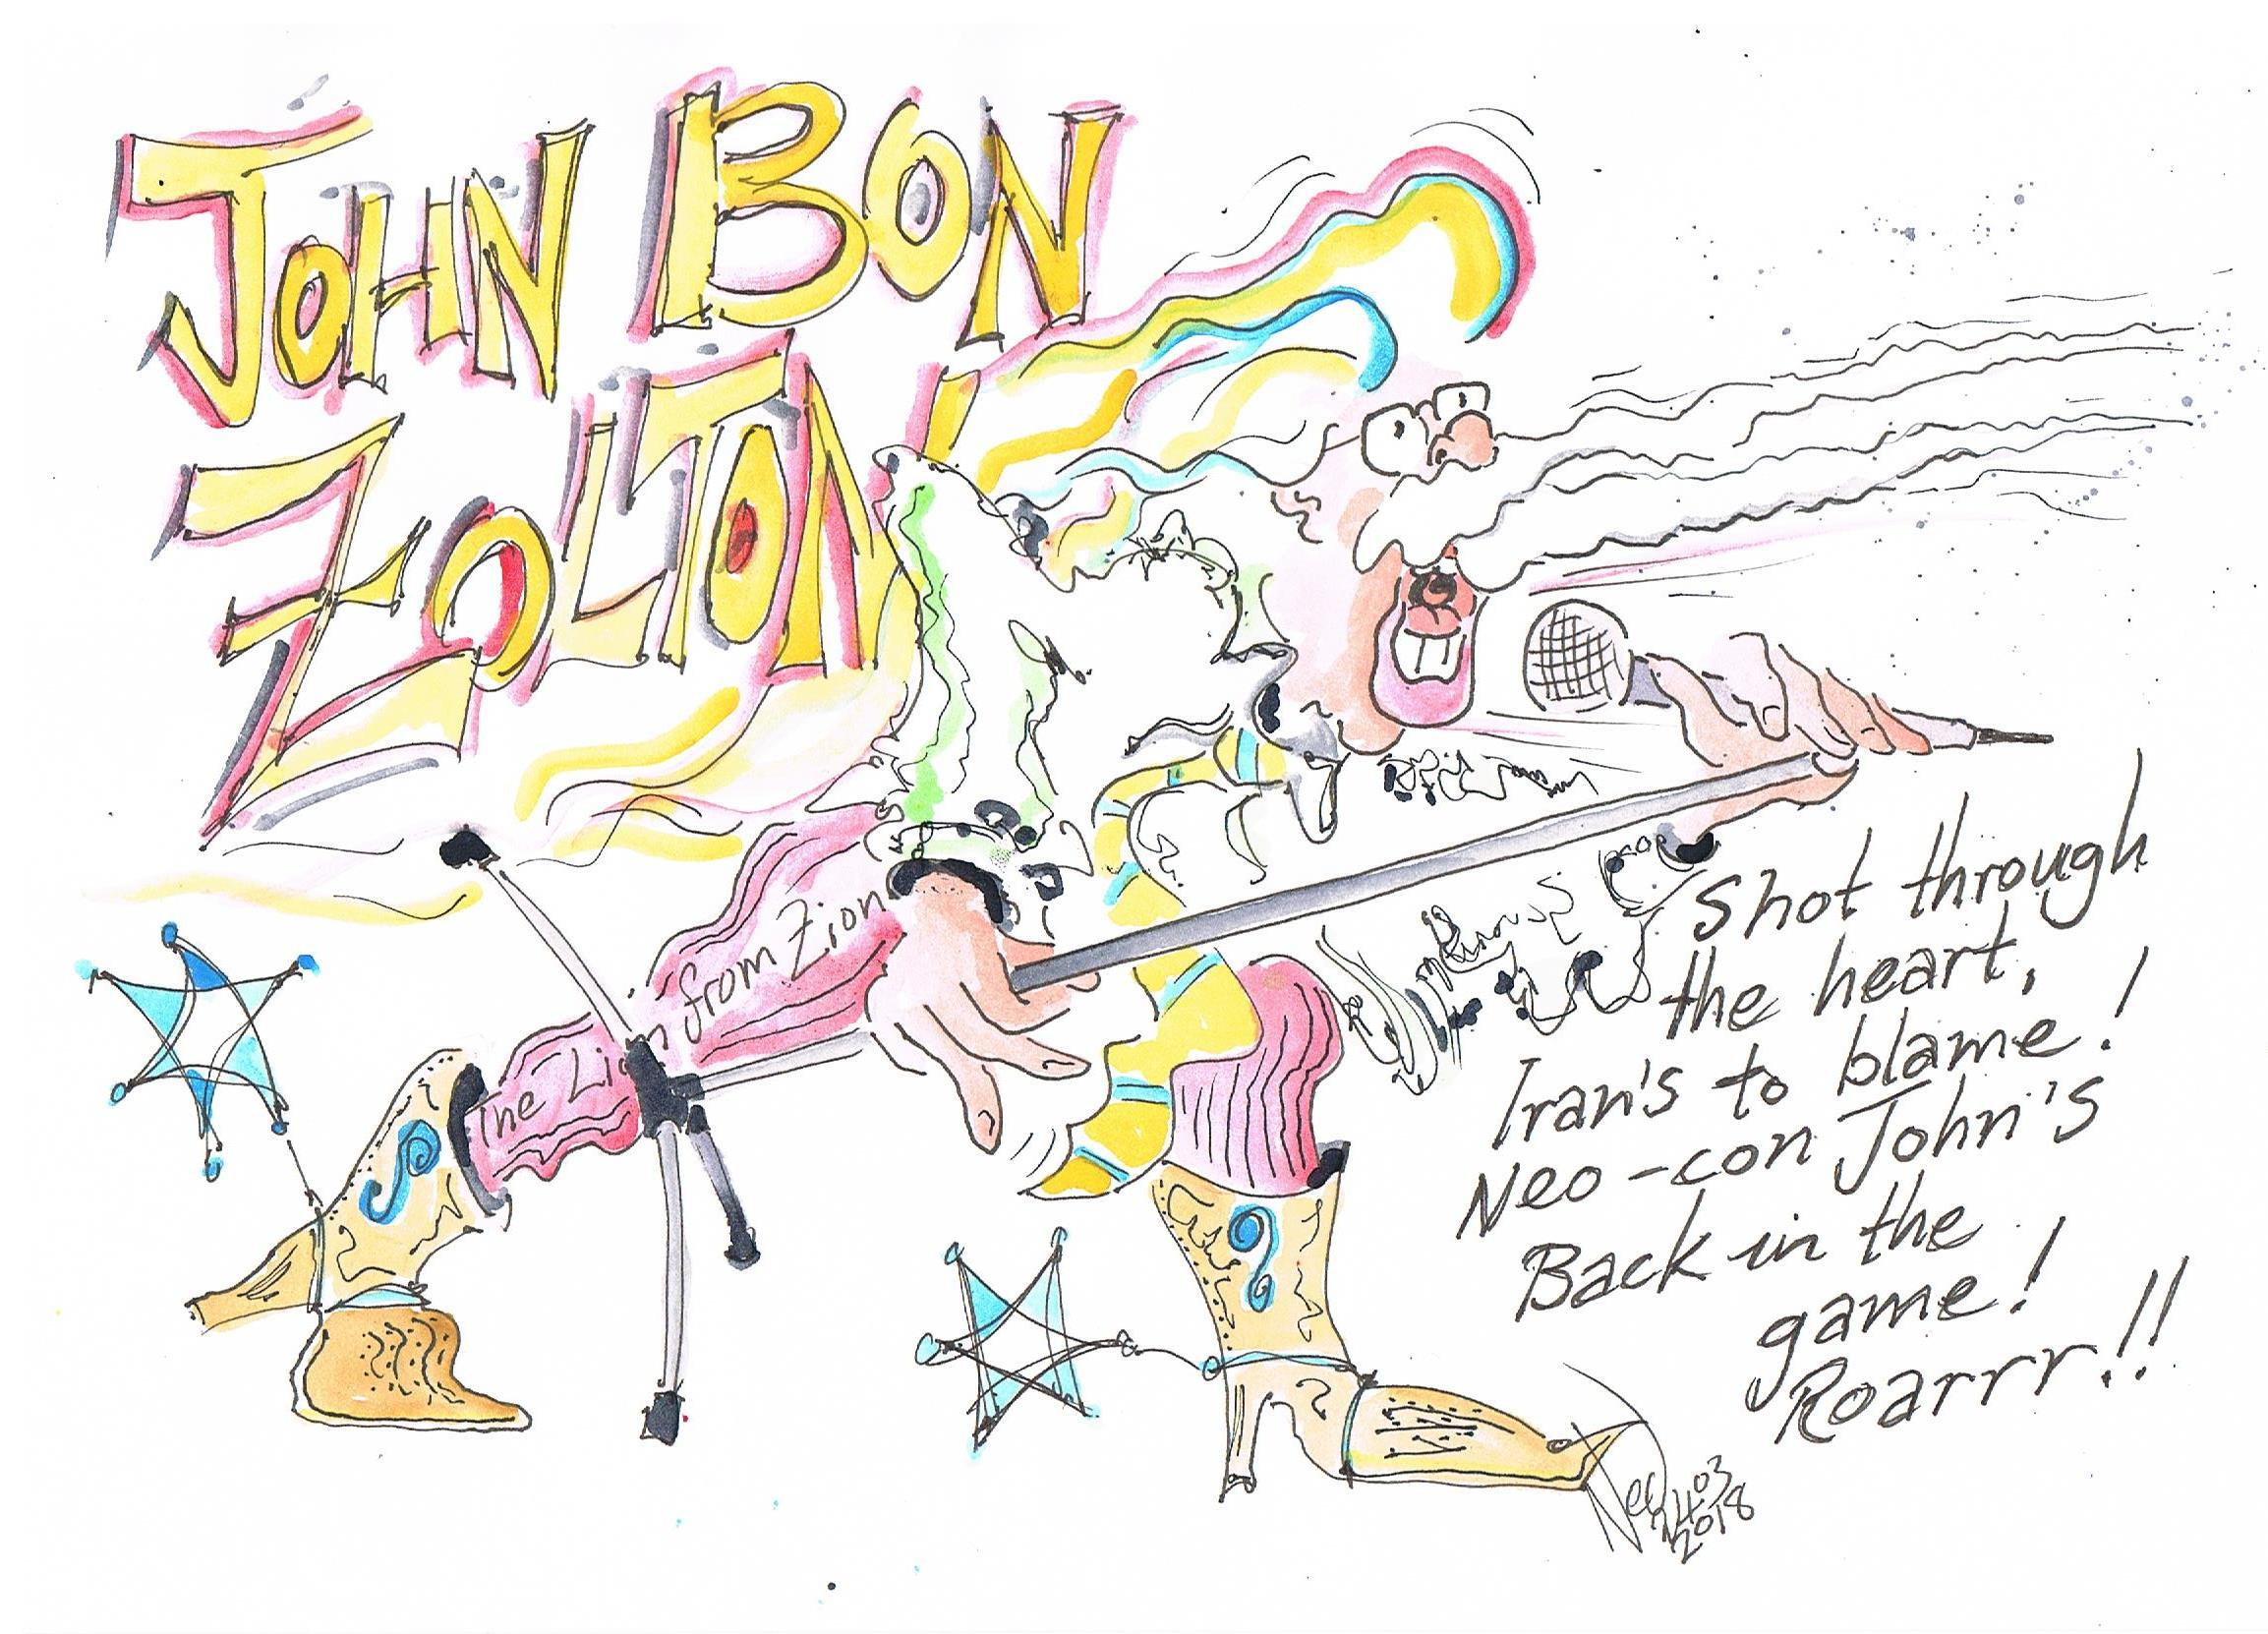 JOHN BON
ZOLTON
The Lion from Zion
Shot through
the heart,
Iran's to blame!
Neo-con John's
Back in the
game!
Roarrr!!
24 03
2018